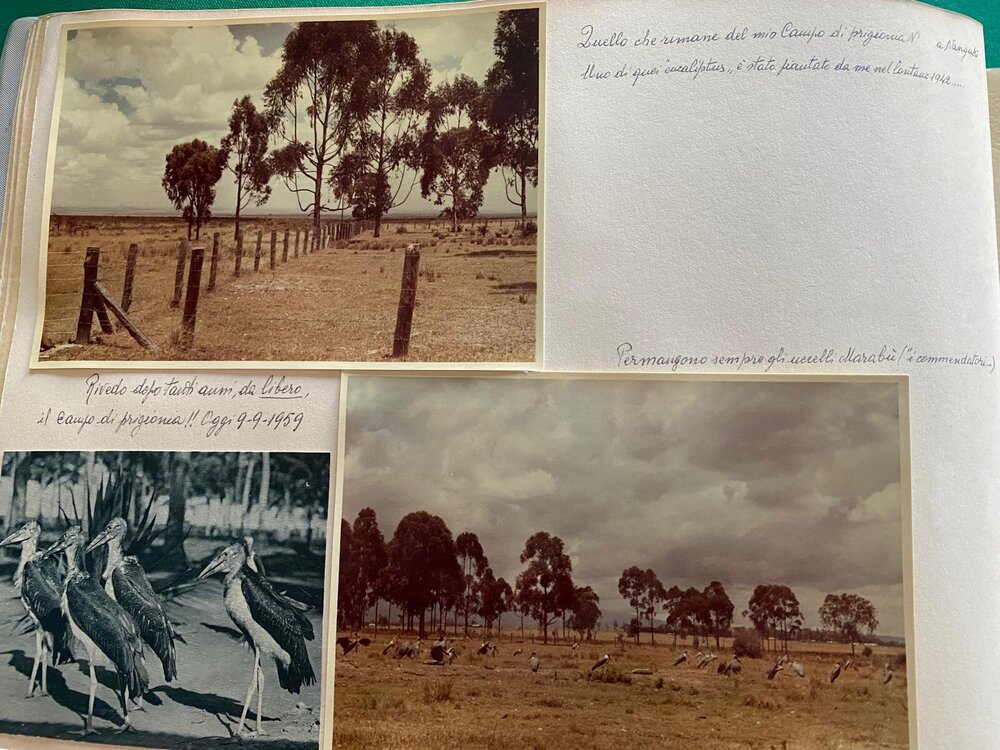 Quello che rimane del mio Campo di prigionia N° a Nanyuki
Uno di quei "eucaliptus" è stato piantato da me nel lontano 1942....
Permangono sempre gli uccelli Marabù ("i commendatori"..)
Rivedo dopo tanti anni, da libero,
il Campo di prigionia!! Oggi 9-9-1959